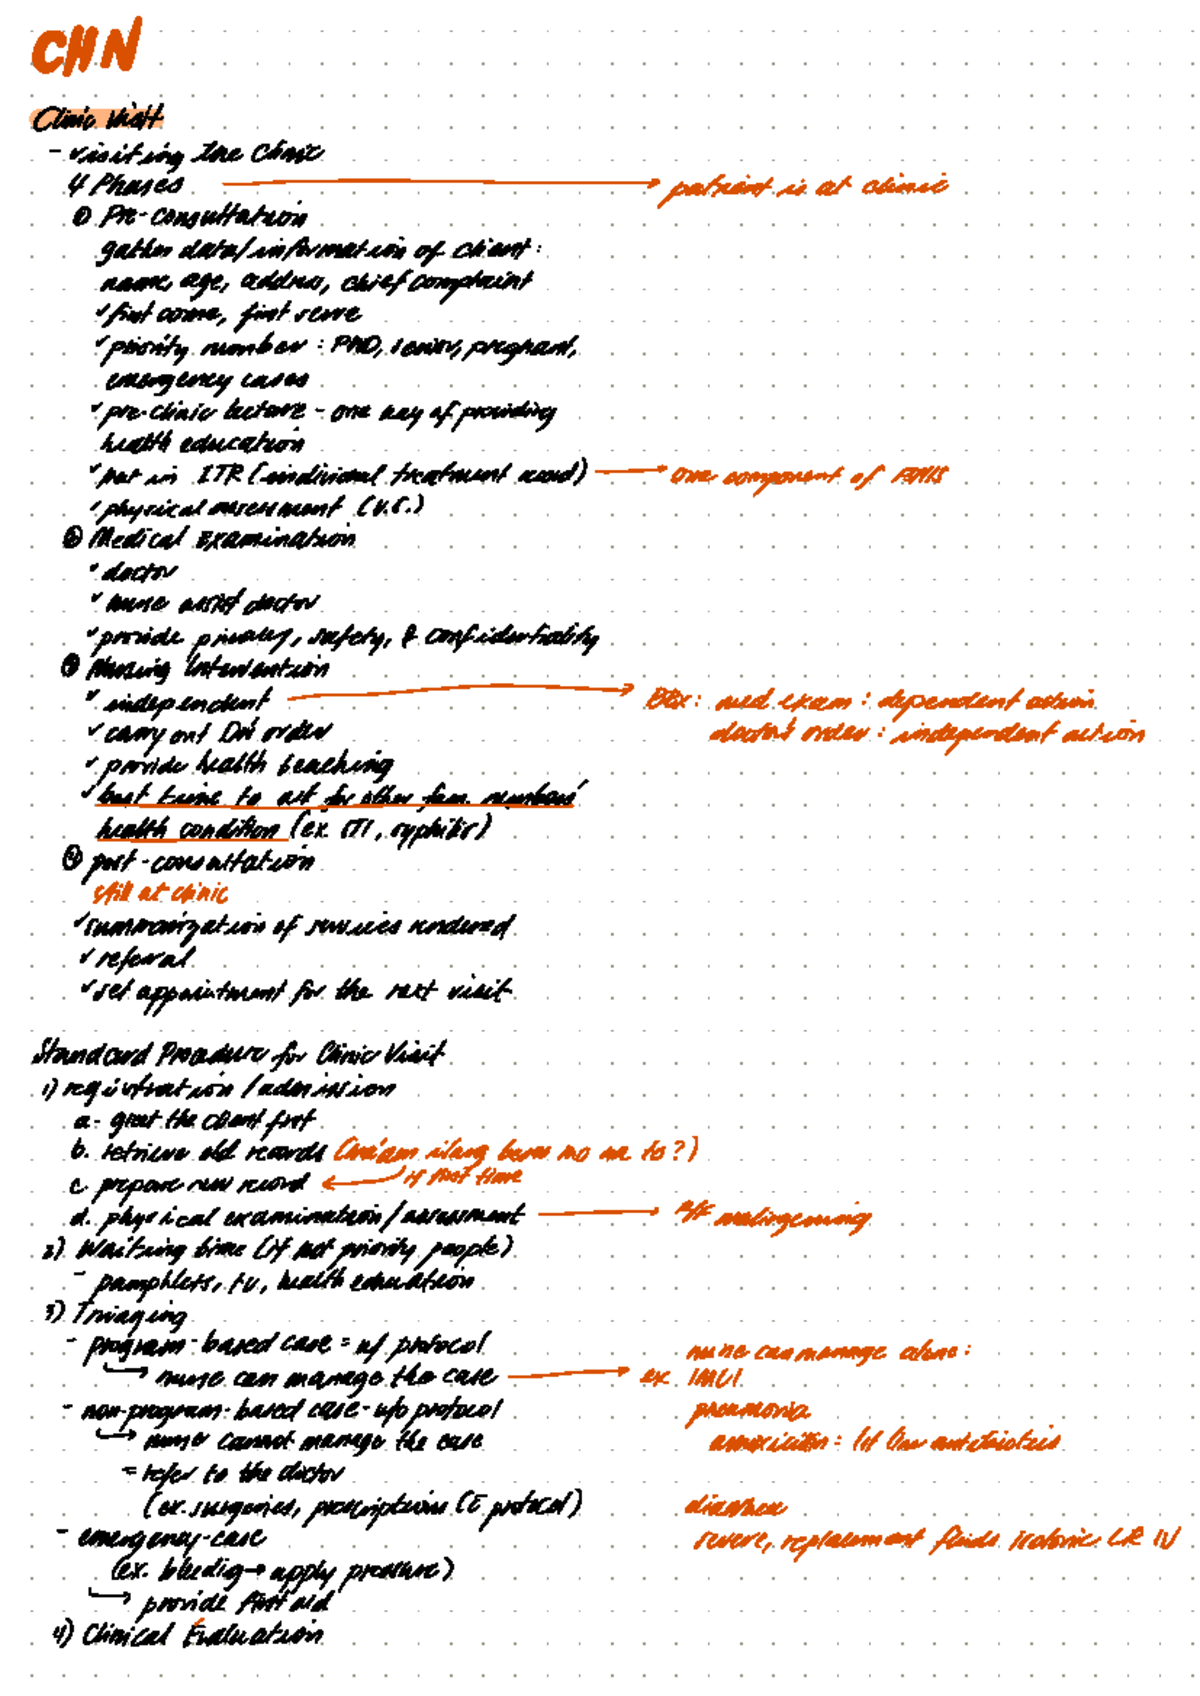 CHN
Clinic Visit
- visiting the clinic
4 Phases → patient is at clinic
① Pre-consultation
gather data/information of client:
name, age, address, chief complaint
✓ first come, first serve
✓ priority number : PWD, senior, pregnant,
emergency cases
✓ pre-clinic lecture - one way of providing
health education
✓ put in ITR (individual treatment record) → one component of FHSIS
✓ physical assessment (v.s.)
② Medical Examination
✓ doctor
✓ nurse assist doctor
✓ provide privacy, safety, & confidentiality
③ Nursing Intervention
✓ independent → med exam : dependent action
✓ carry out Dr's order doctor's order : independent action
✓ provide health teaching
✓ best time to ask for other fam. members'
health condition (ex STI, syphilis)
④ post-consultation
still at clinic
✓ summarization of services rendered
✓ referral
✓ set appointment for the next visit
Standard Procedure for Clinic Visit
1) registration / admission
a. greet the client first
b. retrieve old records (Ma'am ilang beses mo na to?)
c. prepare new record ← if first time
d. physical examination/assessment → malingering
2) Waiting time (if not priority people)
- pamphlets, tv, health education
3) Triaging
- program-based case = w/ protocol nurse can manage alone:
→ nurse can manage the case → ex IMCI
- non-program-based case - w/o protocol pneumonia
→ nurse cannot manage the case amoxicillin : 1st line antibiotics
= refer to the doctor
(ex. surgeries, prescriptions (c̄ protocol) diarrhea
- emergency-case severe, replacement fluids isotonic LR IV
(ex. bleedig → apply pressure)
→ provide first aid
4) Clinical Evaluation